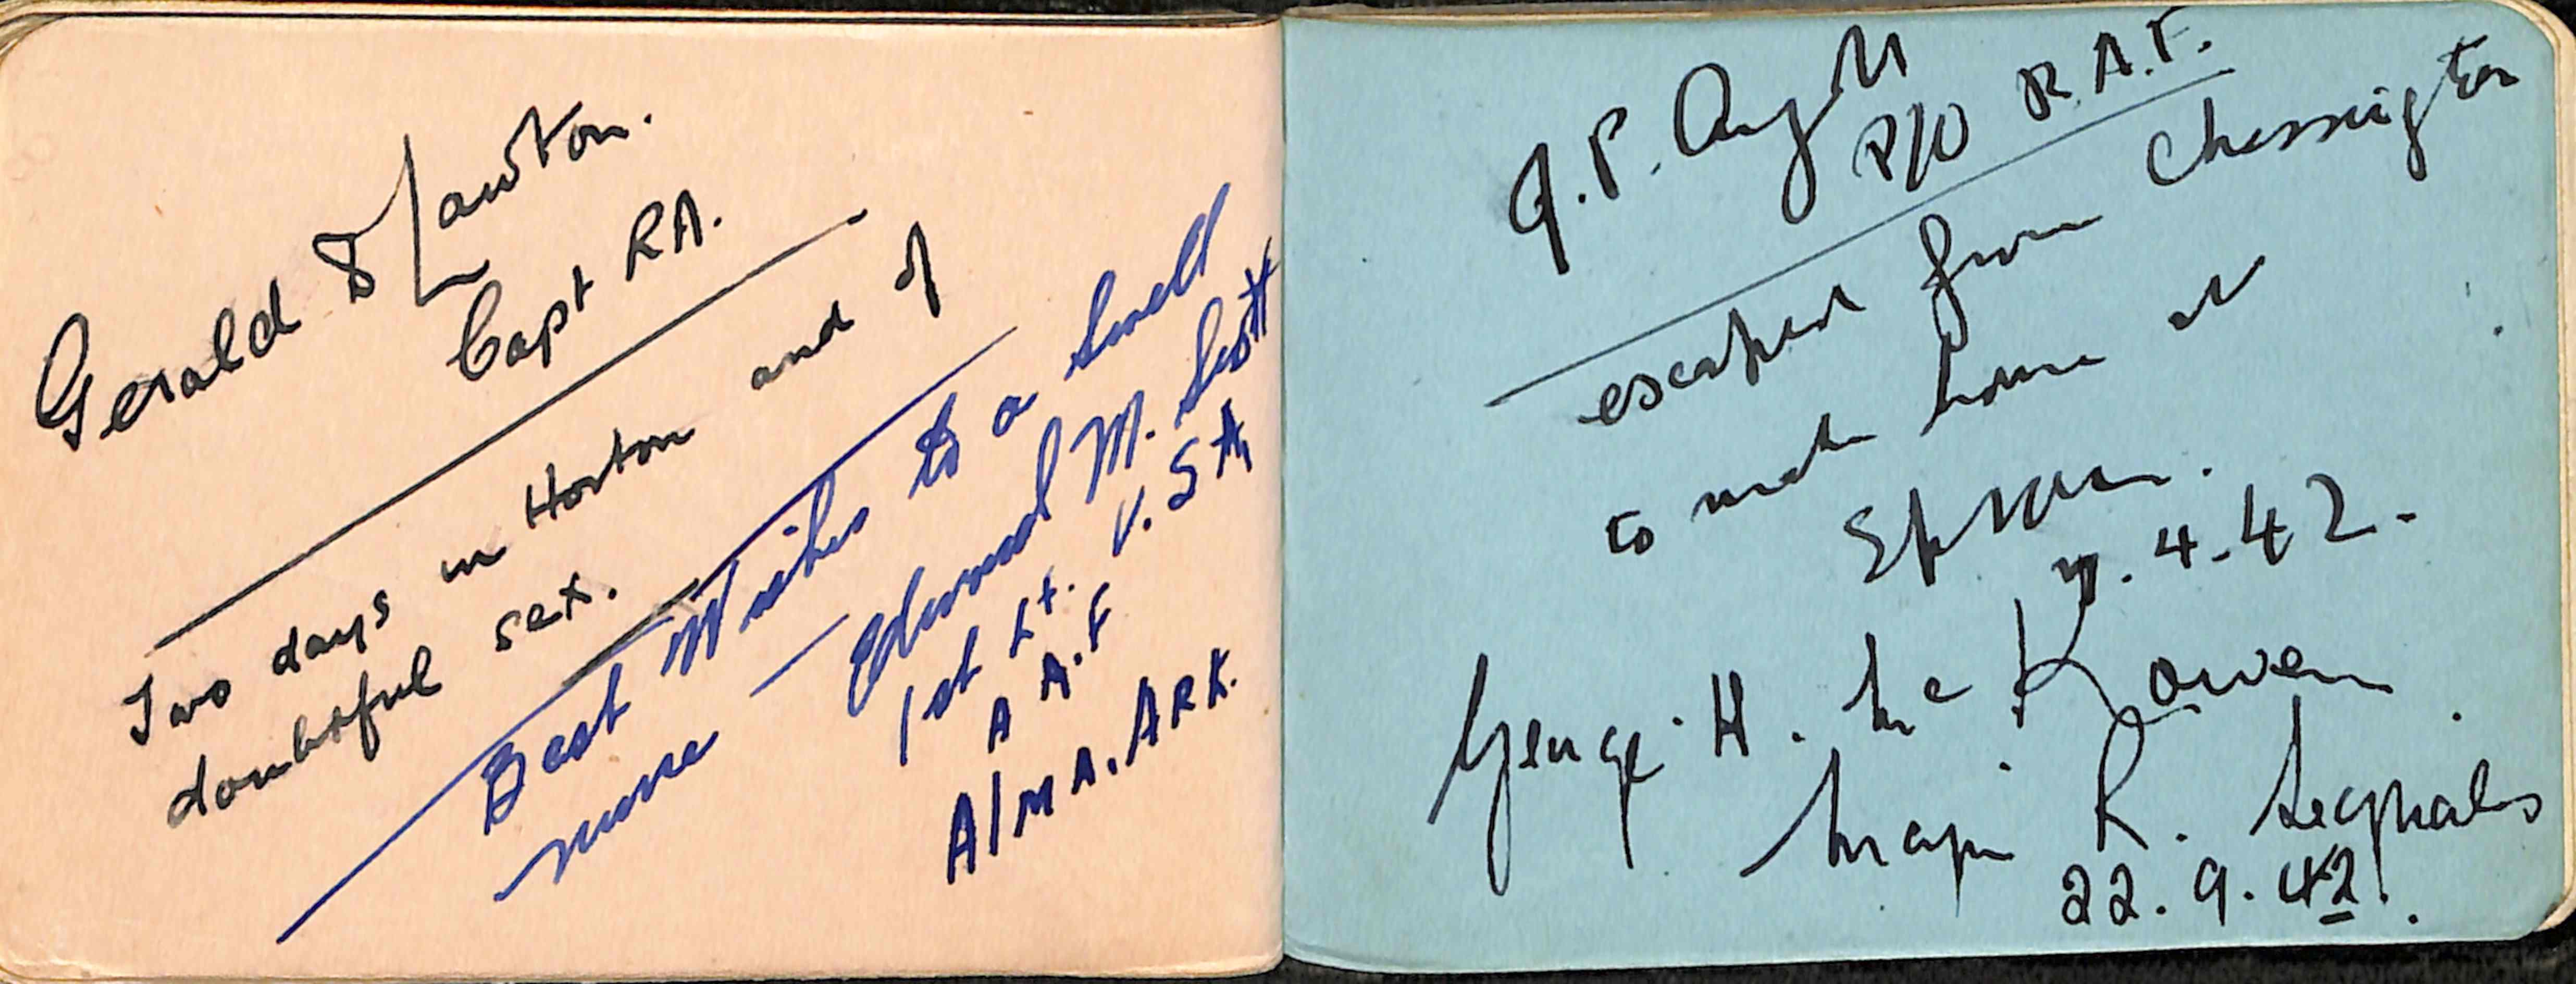 Gerald D Lawton.
Capt RA.
Two days in Horton and of
doubtful sex.
Best Wishes to a swell
nurse — Edward M. Scott
1st Lt. U.S.A
A A.F
Alma, Ark.
P/O R.A.F.
escaped from Chessington
to make home at
Epsom.
4.42.
George. H. McKowen
Major R. Signals
22.9.42.